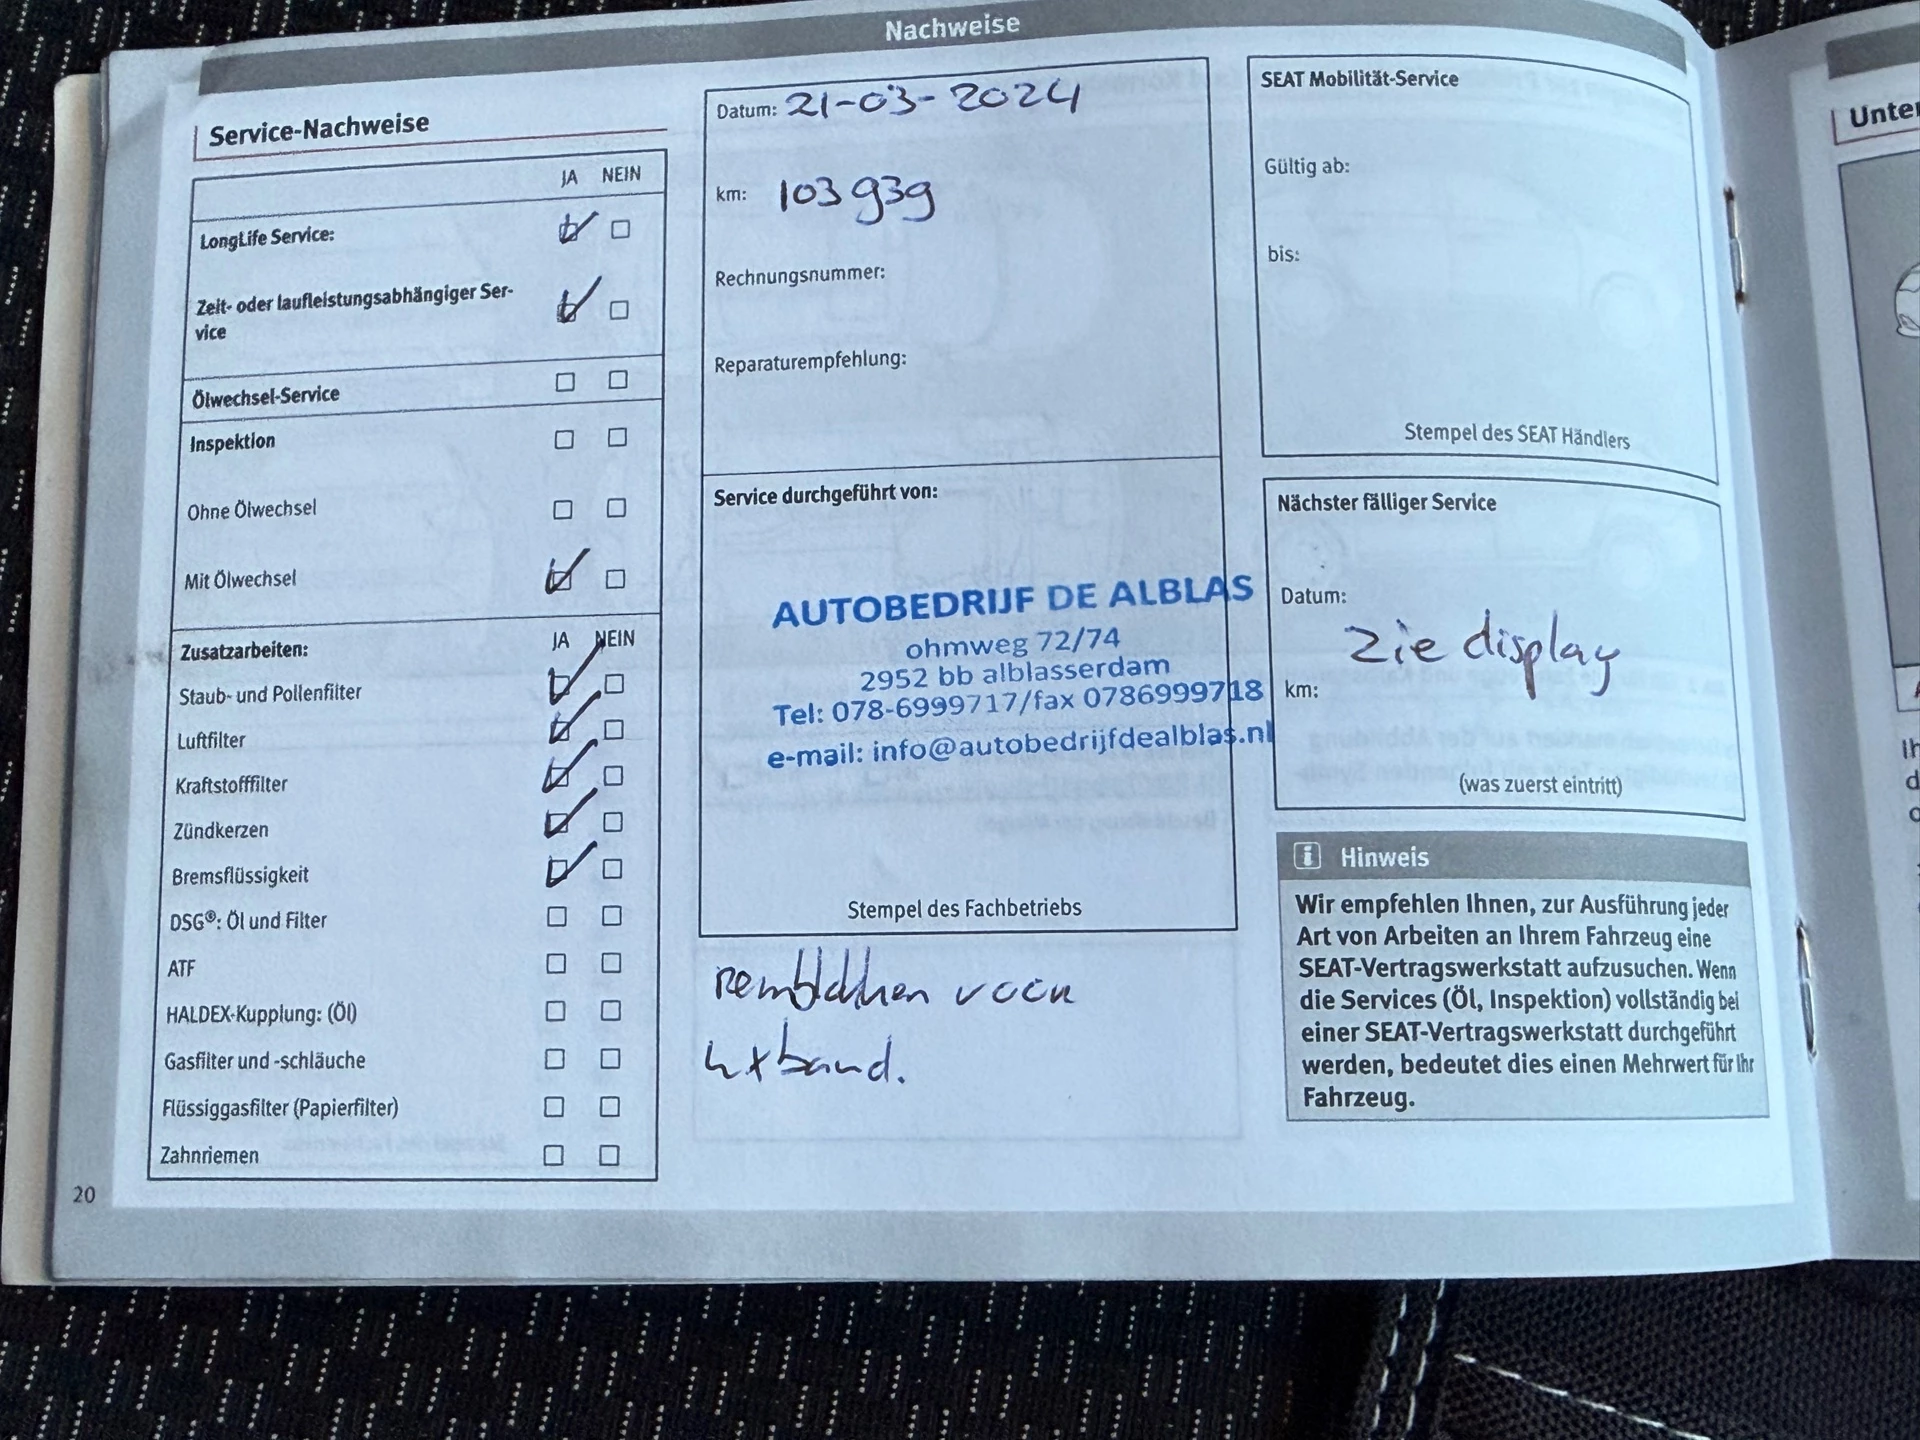 Nachweise
Service-Nachweise
JA NEIN
LongLife Service:
Zeit- oder laufleistungsabhängiger Ser-
vice
Ölwechsel-Service
Inspektion
Ohne Ölwechsel
Mit Ölwechsel
Zusatzarbeiten: JA NEIN
Staub- und Pollenfilter
Luftfilter
Kraftstofffilter
Zündkerzen
Bremsflüssigkeit
DSG®: Öl und Filter
ATF
HALDEX-Kupplung: (Öl)
Gasfilter und -schläuche
Flüssiggasfilter (Papierfilter)
Zahnriemen
20
Datum: 21-03-2024
km: 103939
Rechnungsnummer:
Reparaturempfehlung:
Service durchgeführt von:
AUTOBEDRIJF DE ALBLAS
ohmweg 72/74
2952 bb alblasserdam
Tel: 078-6999717/fax 0786999718
e-mail: info@autobedrijfdealblas.nl
Stempel des Fachbetriebs
voor
band.
SEAT Mobilität-Service
Gültig ab:
bis:
Stempel des SEAT Händlers
Nächster fälliger Service
Datum:
zie display
km:
(was zuerst eintritt)
i Hinweis
Wir empfehlen Ihnen, zur Ausführung jeder
Art von Arbeiten an Ihrem Fahrzeug eine
SEAT-Vertragswerkstatt aufzusuchen. Wenn
die Services (Öl, Inspektion) vollständig bei
einer SEAT-Vertragswerkstatt durchgeführt
werden, bedeutet dies einen Mehrwert für Ihr
Fahrzeug.